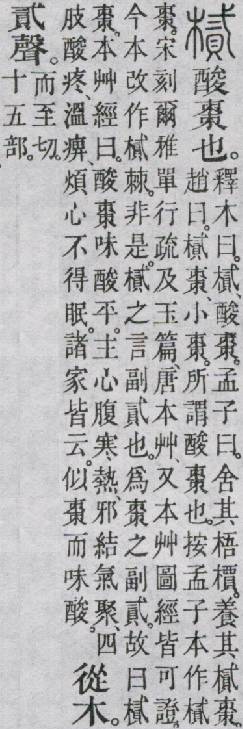 樲酸棗也。釋木曰。樲酸棗。孟子曰。舍其梧檟。養其樲棗。
趙曰。樲棗、小棗。所謂酸棗也。按孟子本作樲
棗。宋刻爾雅單行疏及玉篇、唐本艸、又本艸圖經皆可證。
今本改作樲棘。非是。樲之言副貳也。爲棗之副貳。故曰樲
棗。本艸經曰。酸棗味酸平。主心腹寒、熱、邪結氣聚、四
肢酸疼、溫痹、煩心不得眠。諸家皆云。似棗而味酸。從木。
貳聲。而至切。
十五部。